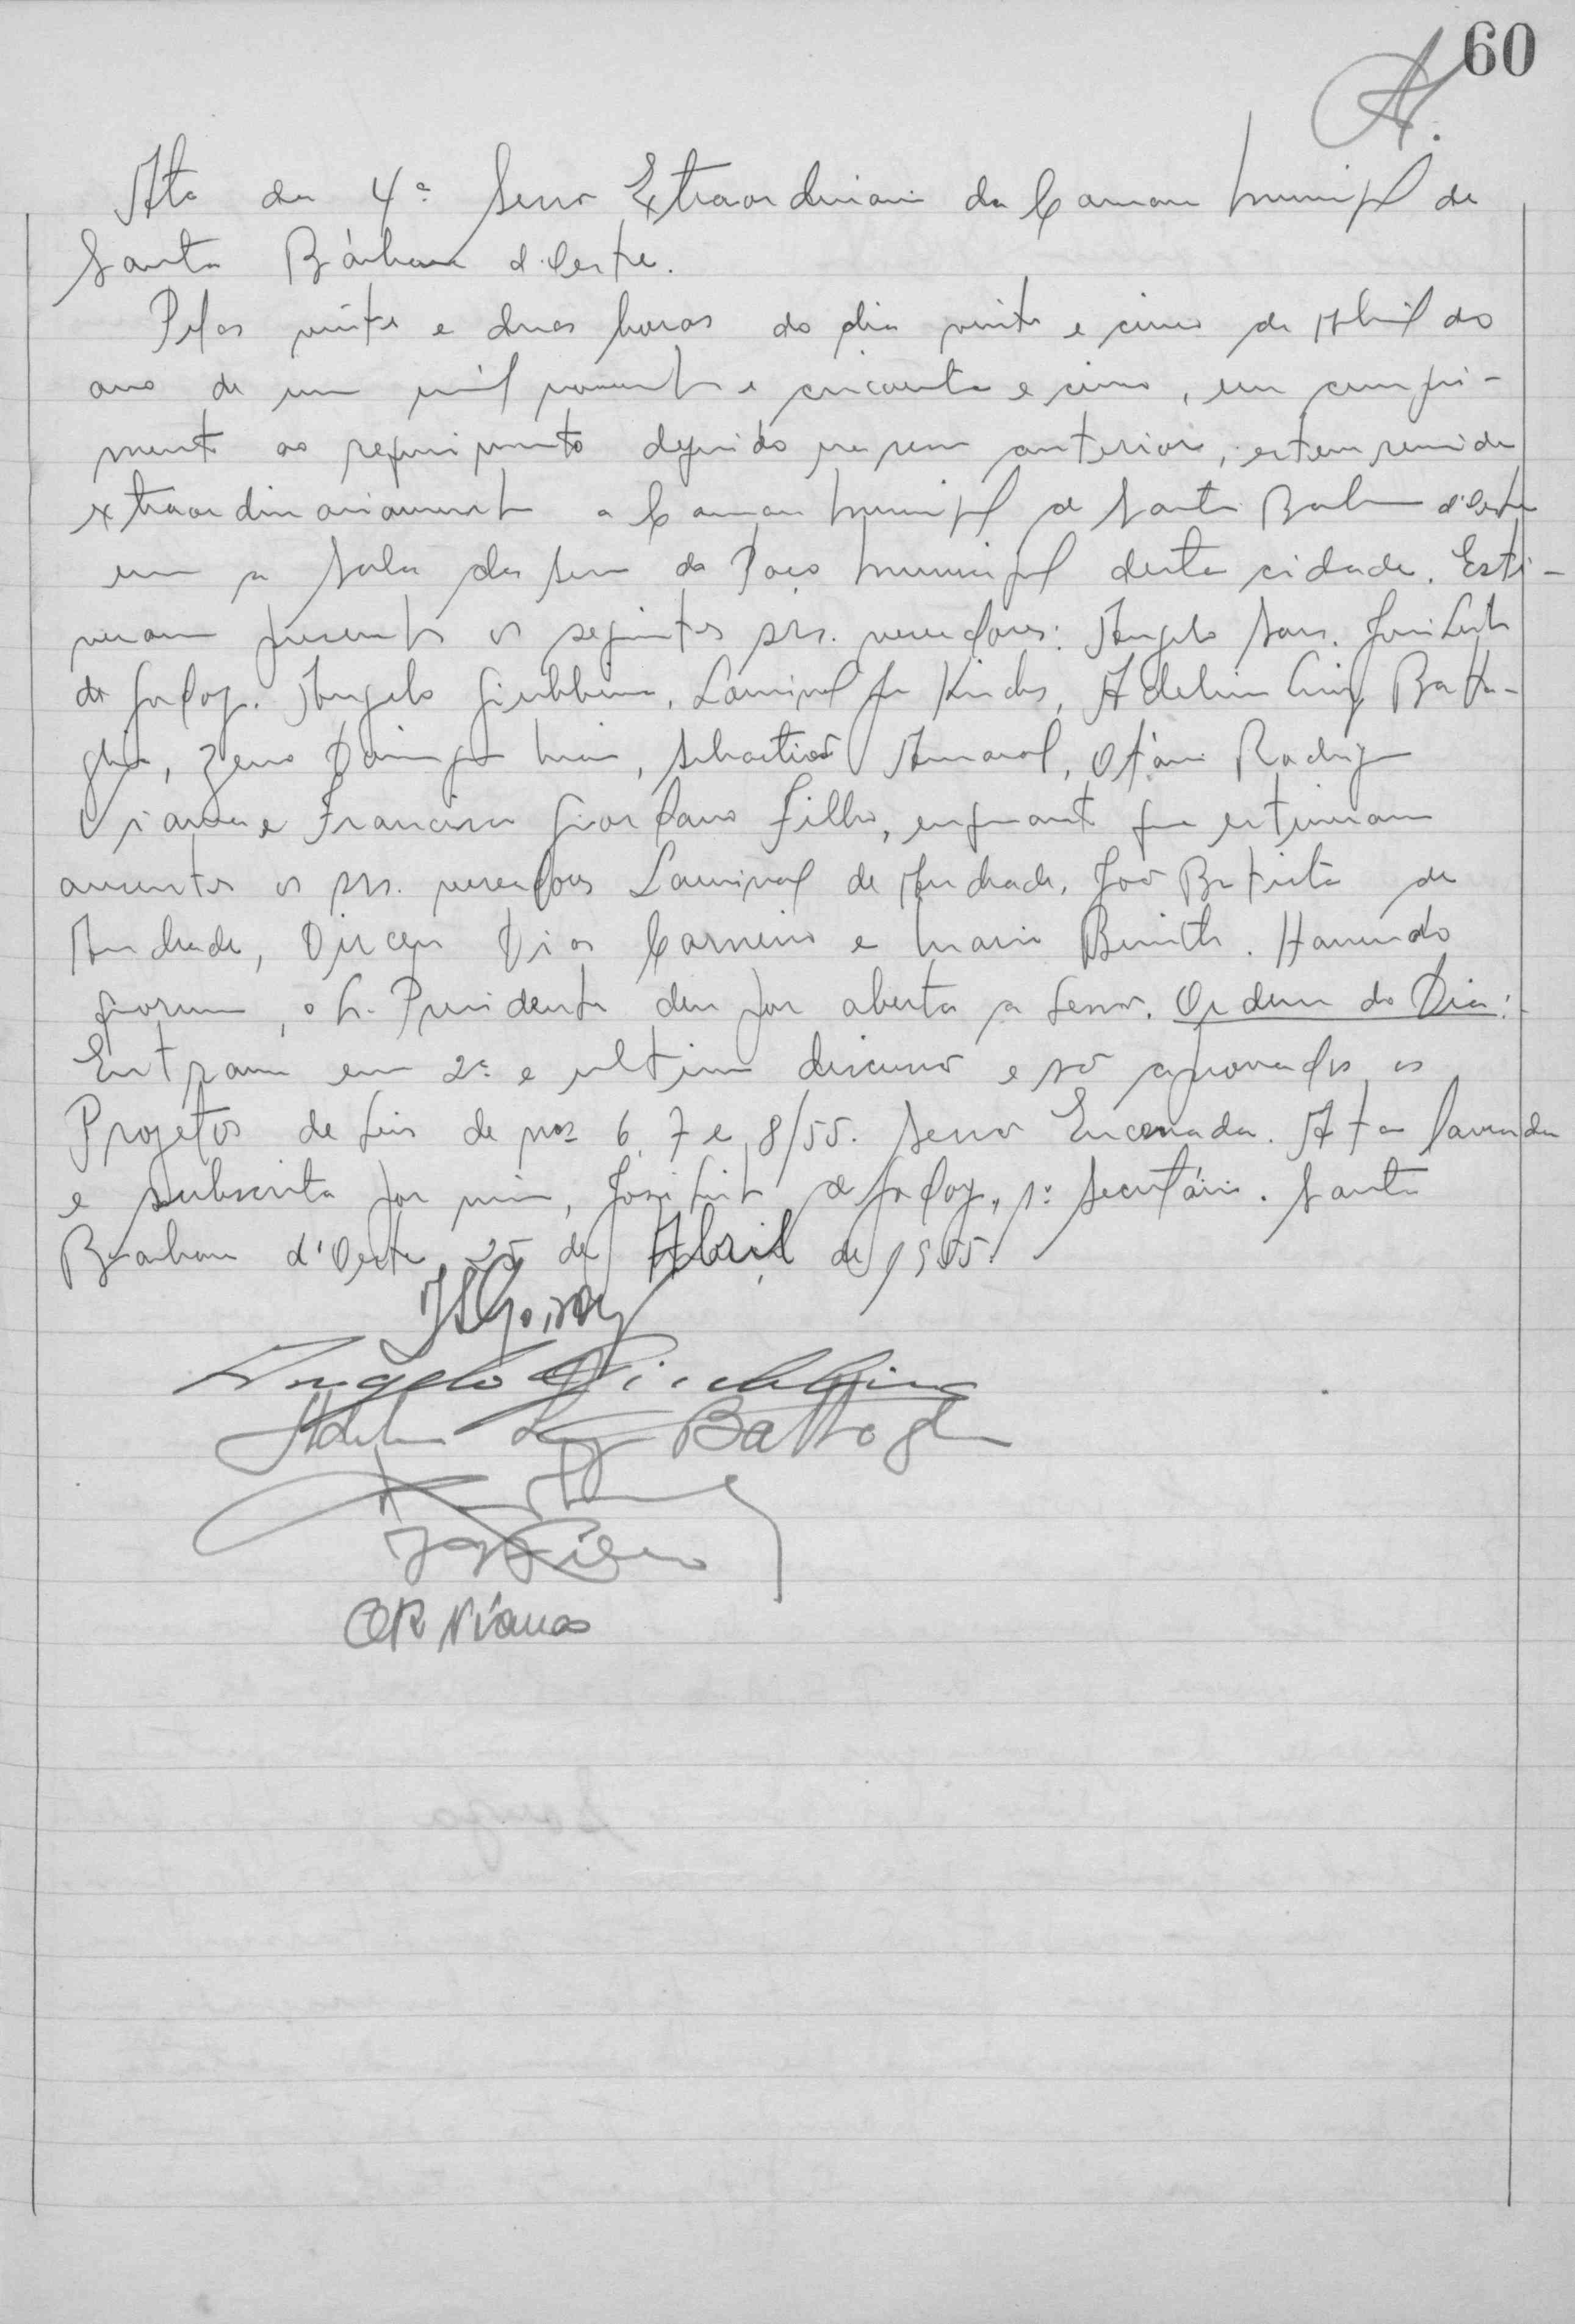 60
Ata da 4ª Sessão Extraordinaria da Camara Municipal de
Santa Bárbara d'Oeste.
Pelas vinte e duas horas do dia vinte e cinco de Abril do
ano de um mil novecentos e cincoenta e cinco, em cumpri-
mento ao requerimento deferido na sessão anterior, esteve reunida
extraordinariamente a Camara Municipal de Santa Barbara d'Oeste
em a sala das sessões do Paço Municipal desta cidade. Esti-
veram presentes os seguintes srs. vereadores: Angelo Sans, José Leite
de Godoy, Angelo Giubbina, Lourival Adelino Luiz Batta-
glia, Zeno Domingos Maia, Sebastião Amaral, Otávio Rodrigues
Viana e Francisco Giordano Filho, enquanto que estiveram
ausentes os srs. vereadores Lourival de Andrade, João Batista de
Andrade, Dirceu Dias Carneiro e Mario Benito. Havendo
quorum, o Sr. Presidente deu por aberta a sessão. Ordem do Dia:
Entram em 2ª e ultima discussão e são aprovados os
Projetos de Leis de nos 6, 7 e 8/55. Sessão Encerrada. Ata lavrada
e subscrita por mim, José Leite de Godoy, 1º Secretário. Santa
Barbara d'Oeste 25 de Abril de 1955.
JLGodoy
Angelo Giubbina
Adelino Luiz Battaglia
OR Viana